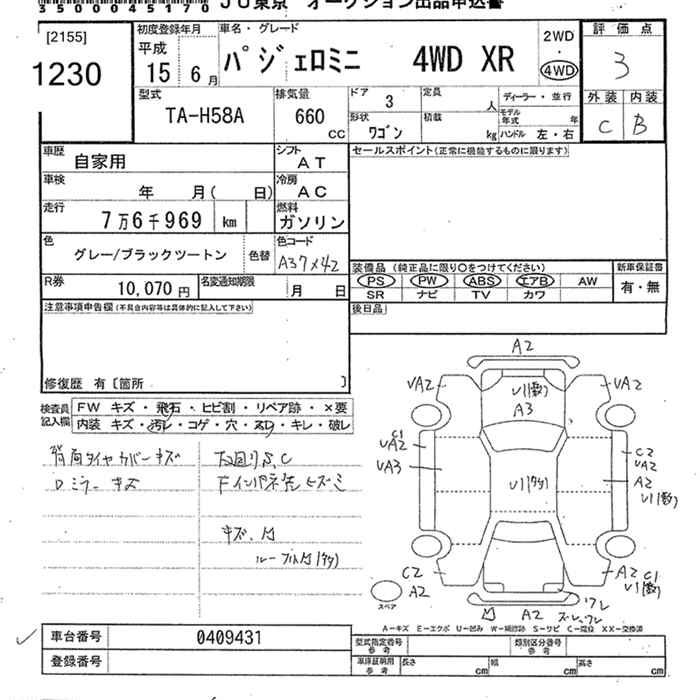 350004517 0 JU東京 オークション出品申込書
[2155]
1230
初度登録年月
平成
15 6 月
車名・グレード
パジェロミニ 4WD XR
2WD
・
4WD
評価点
3
外装 内装
C B
型式
TA-H58A
排気量
660
CC
ドア
3
形状
ワゴン
定員
人
積載
kg
ディーラー・並行
モデル年式 年
ハンドル 左・右
車歴
自家用
シフト
AT
車検
年 月( 日)
冷房
AC
走行
7万6千969 km
燃料
ガソリン
色
グレー/ブラックツートン
色替
色コード
A37×42
R券
10,070 円
名変通知期限
月 日
セールスポイント(正常に機能するものに限ります)
装備品(純正品に限り○をつけてください)
PS PW ABS エアB AW
SR ナビ TV カワ
新車保証書
有・無
後日品
注意事項申告欄(不具合内容等は具体的に記入して下さい)
修復歴 有〔箇所 〕
検査員記入欄
FW キズ・飛石・ヒビ割・リペア跡・×要
内装 キズ・汚レ・コゲ・穴・スレ・キレ・破レ
背面タイヤカバーキズ
Dミラーキズ
下廻りS、C
キズ、凹
A2
VA2
VA2
U1(数)
A3
C1
VA2
VA3
U1(タタリ)
C2
VA2
A2
U1(数)
C2
A2
A2 C1
U1(数)
ワレ
A2
ズレ、ワレ
スペア
A－キズ E－エクボ U－凹み W－補修跡 S－サビ C－腐蝕 XX－交換済
車台番号 0409431
登録番号
型式指定番号
参考
類別区分番号
参考
車庫証明用
参考
長さ cm 幅 cm 高さ cm